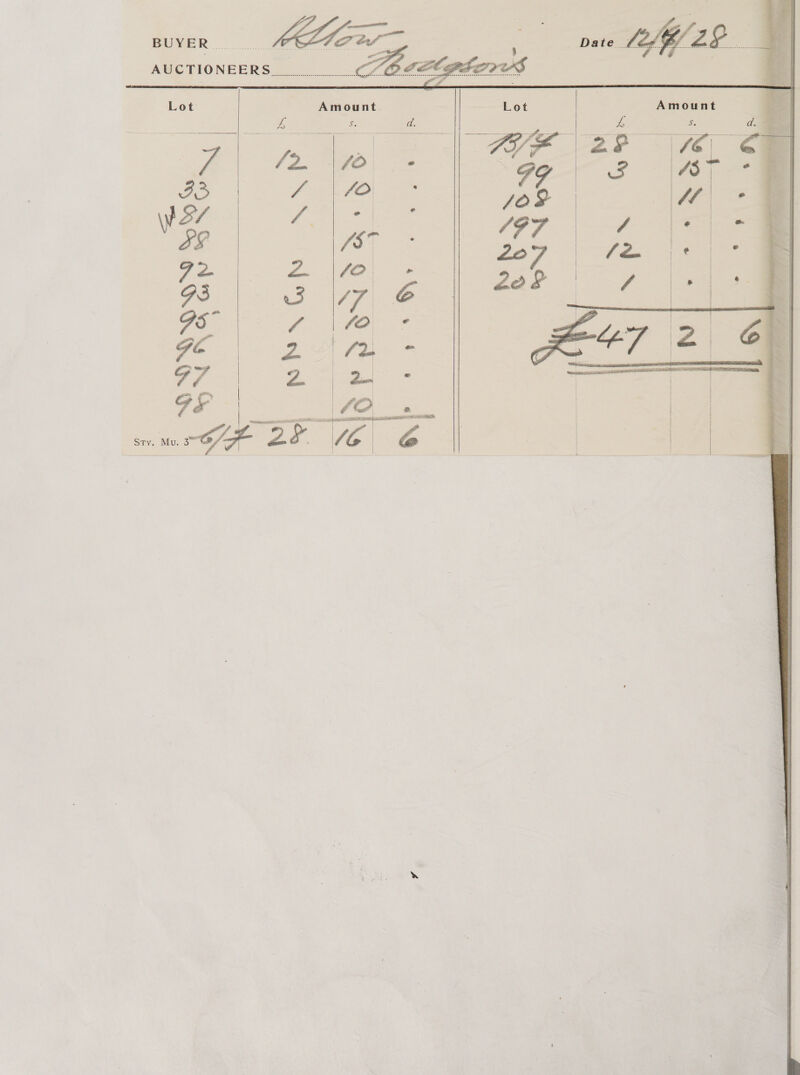 BUYER Date
AUCTIONEERS Hodgson's
Lot Amount Lot Amount
£ s. d. £ s. d.
7 12 10 - B/F 28 16 6
33 1 10 - 99 3 15 -
81 1 - - 108 11 -
88 15 - 197 1 - -
92 2 10 - 207 12 - -
93 3 17 6 208 1 - -
95 1 10 - £47 2 6
96 2 12 -
97 2 2 -
98 10 -
Sty. Mu. 3 C/F 28 16 6